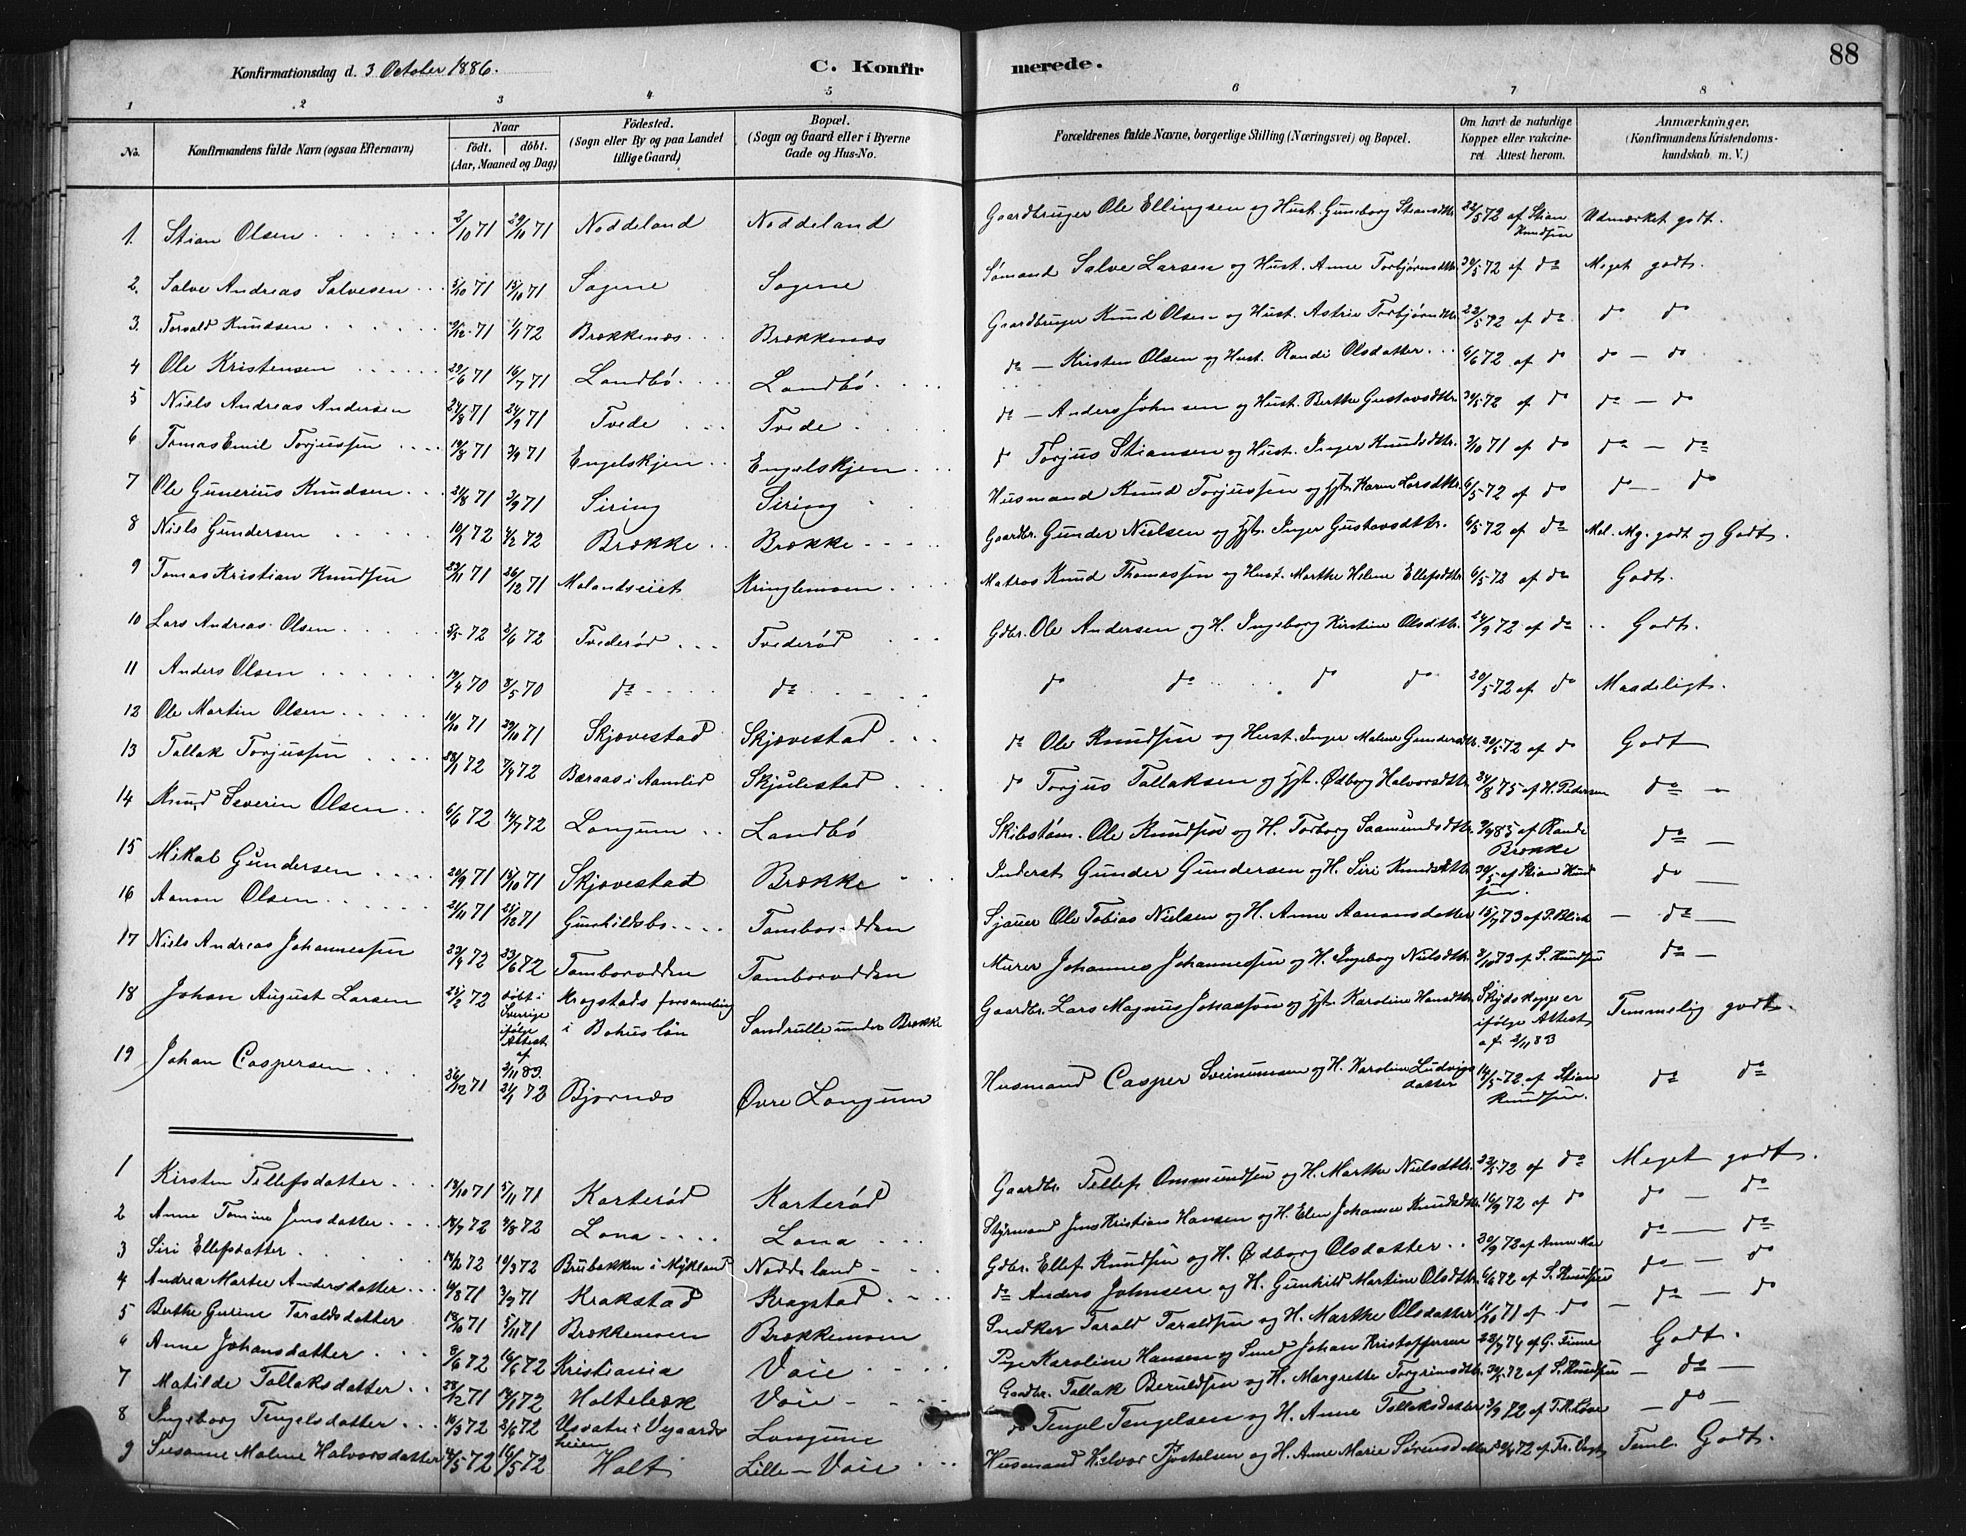 Konfirmationsdag d. 3 October 1886. C. Konfirmerede. 88
1 2 3 4 5 6 7 8
No. Konfirmandens fulde Navn (ogsaa Efternavn) Naar født. døbt. (Aar, Maaned og Dag) Fødested. (Sogn eller By og paa Landet tillige Gaard) Bopæl. (Sogn og Gaard eller i Byerne Gade og Hus-No. Forældrenes fulde Navne, borgerlige Stilling (Næringsvei) og Bopæl. Om havt de naturlige Kopper eller vakcineret Attest herom. Anmærkninger, (Konfirmandens Kristendomskundskab m. V.)
1. Stian Olsen 2/10 71 29/10 71 Noddeland Noddeland Gaardbruger Ole Ellingsen og Hust. Gunborg Stiansdtr. 22/5 72 af Stian Knudsen Udmærket godt.
2. Salve Andreas Salvesen 5/10 71 15/10 71 Sagene Sagene Sømand Salve Larsen og Hust. Anne Torbjørnsdtr. 30/5 72 af do Meget godt.
3. Torvald Knudsen 9/12 71 1/1 72 Brækkenæs Brækkenæs Gaardbruger Knud Olsen og Hust. Astrie Torbjørnsdtr. 22/5 72 af do do do
4 Ole Kristensen 29/6 71 16/7 71 Landbø Landbø do — Kristen Olsen og Hust. Randi Olsdatter 6/6 72 af do do — do
5 Niels Andreas Andersen 24/8 71 24/9 71 Tvede Tvede do — Anders Johnsen og Hust. Berthe Gustavsdtr. 30/5 72 af do do — do
6 Tomas Emil Torjussen 19/8 71 3/9 71 Engelskjen Engelskjen do Torjus Stiansen og Hust. Inger Knudsdtr. 2/10 71 af do do — do
7 Ole Gunerius Knudsen 21/8 71 3/9 71 Siring Siring Husmand Knud Torjussen og Hst. Karen Larsdtr. 6/5 72 af do do — do
8 Niels Gundersen 10/1 72 4/2 72 Brække Brække Gaardbr. Gunder Nielsen og Hst. Inger Gustavsdtr. 6/5 72 af do Mel. Mg. godt og Godt.
9 Tomas Kristian Knudsen 29/11 71 26/12 71 Molandseiet Kringlemoen Matros Knud Thomassen og Hust. Marthe Helene Ellefsdtr. 6/5 72 af do Godt.
10 Lars Andreas Olsen 5/5 72 2/6 72 Tvederød Tvederød Gdbr. Ole Andersen og H. Ingeborg Kirstine Olsdtr. 24/9 72 af do Godt.
11 Anders Olsen 19/4 70 8/5 70 do do do do do do 20/5 72 af do Maadeligt.
12 Ole Martin Olsen 10/10 71 29/10 71 Skjævestad Skjævestad do Ole Knudsen og Hust. Inger Malene Gundersdtr. 30/5 72 af do Godt
13 Tallak Torjussen 72 7/4 72 Baraas i Aamlid Skjulestad do Torjus Tallaksen og Hst. Ødborg Halvorsdtr. 24/8 75 af H. Pedersen do
14 Knud Severin Olsen 6/6 72 14/7 72 Longum Landbø Skibstøm. Ole Knudsen og H. Torborg Saamundsdtr. 3/9 85 af Rande Brække do —
15 Mikal Gundersen 20/9 71 15/10 71 Skjævestad Brække Inderst Gunder Gundersen og H. Siri Knudsdtr. 30/5 af Stian Knudsen. do —
16 Aanon Olsen 21/11 71 25/12 71 Gunhildsbo Tamborodden Sjauer Ole Tobias Nielsen og H. Anne Aanonsdatter 15/7 73 af P. Blick — do —
17 Niels Andreas Johannessen 29/4 72 23/6 72 Tamborodden Tamborodden Murer Johannes Johannessen og H. Ingeborg Nielsdtr. 3/10 73 af S. Knudsen do —
18 Johan August Larsen 25/2 72 døbt i Sverige ifølge Attest af 2/11 83. Krogstads forsamling i Bohuslän Sandrulle under Brække Gaardbr. Lars Magnus Johansson og Hst. Karoline Hansdtr. Skydskopper ifølge Attest af 2/11 83 Temmelig godt.
19 Johan Caspersen 26/12 71 21/1 72 Bjornæs Øvre Longum Husmand Casper Sveinumsen og H. Karoline Ludvigsdatter 14/5 72 af Stian Knudsen. do do
1 Kirsten Tellefsdatter 14/10 71 5/11 71 Karterød Karterød Gaardbr. Tellef Ommundsen og H. Marthe Nielsdtr. 22/5 72 af do Meget godt.
2 Anne Tomine Jensdatter 14/7 72 4/8 72 Lona Lona Styrmand Jens Kristian Hansen og H. Elen Johanne Knudsdtr. 16/9 72 af do do — do
3 Siri Ellefsdatter 14/2 72 10/3 72 Brubakken i Mykland Noddeland Gdbr. Ellef Knudsen og H. Ødborg Olsdatter 30/9 72 af Anne do — do
4 Andrea Martee Andersdatter 10/8 71 3/9 71 Krakstad Kragstad do Anders Johnsen og H. Gunhild Martine Olsdtr. 6/6 72 af S. Knudsen do — do
5 Berthe Gurine Taraldsdatter 18/10 71 5/11 71 Brækkemoen Brækkemoen Snedker Tarald Taraldsen og H. Marthe Olsdatter 11/10 71 af do — do — do
6 Anne Johansdatter 8/6 72 16/6 72 Kristiania Voie Pige Karoline Hansen og Smed Johan Kristoffersen 22/7 74 af G. Time Godt.
7 Matilde Tallaksdatter 28/12 71 14/1 72 Holtelæk Voie Gaardbr. Tallak Beruldsen og H. Margrethe Torgrimsdtr. 30/5 72 af S. Knudsen — do —
8 Ingeborg Tengelsdatter 10/3 72 2/6 72 Ussatn i Vegaardsheien Longum do Tengel Tengelsen og H. Anne Tallaksdatter 3/9 72 af T. A. Løve — do —
9 Susanne Malene Halvorsdatter 4/5 72 16/5 72 Holt Lille-Voie Husmand Halvor Tjostolsen og H. Anne Marie Sørensdatter 72 af Fr. Vogt Teml. Godt.